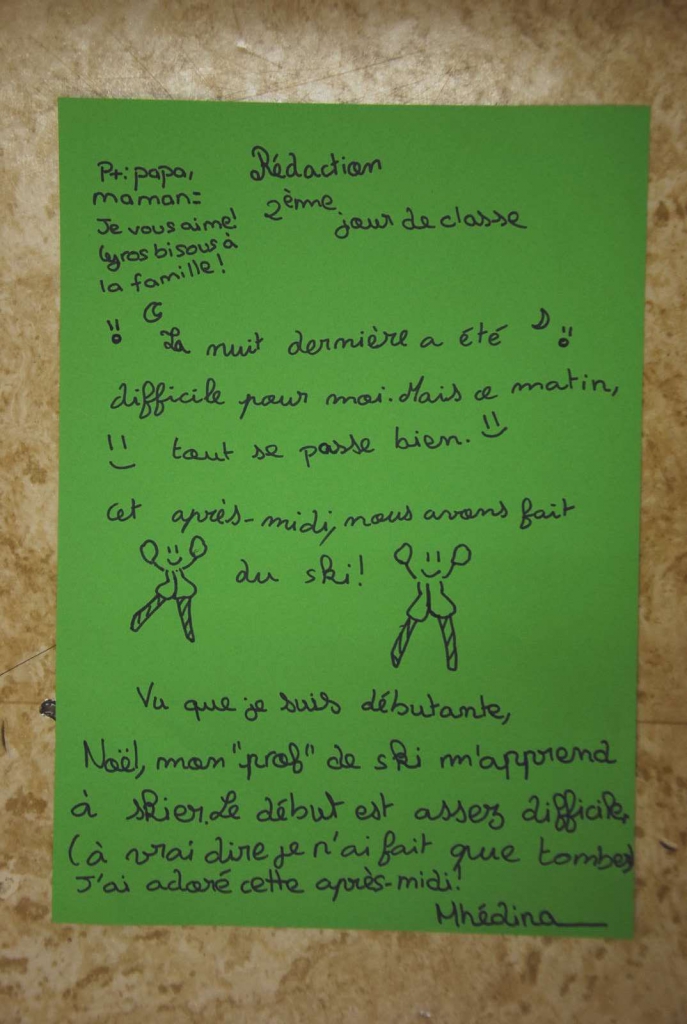 Pt: papa,
maman=
Je vous aime!
Gros bisous à
la famille!
Rédaction
2ème jour de classe
La nuit dernière a été
difficile pour moi. Mais ce matin,
tout se passe bien.
Cet après-midi, nous avons fait
du ski!
Vu que je suis débutante,
Noël, mon "prof" de ski m'apprend
à skier. Le début est assez difficile,
(à vrai dire je n'ai fait que tomber)
J'ai adoré cette après-midi!
Mhédina